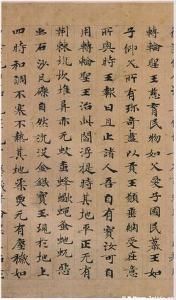 轉輪聖王慈育民物如父愛子國民慕王如
子仰父所有珍奇盡以貢王願垂納受在意
所與時王報曰且止諸人吾自有寶汝可自
用轉輪聖王治此閻浮提時其地平正无有
荊棘坑坎堆阜亦无蚊虻蜂蠍蠅蚤蛇蚖惡
虫石沙瓦礫自然沉沒金銀寶玉現於地上
四時和調不寒不熱其地柔耎无有塵穢如